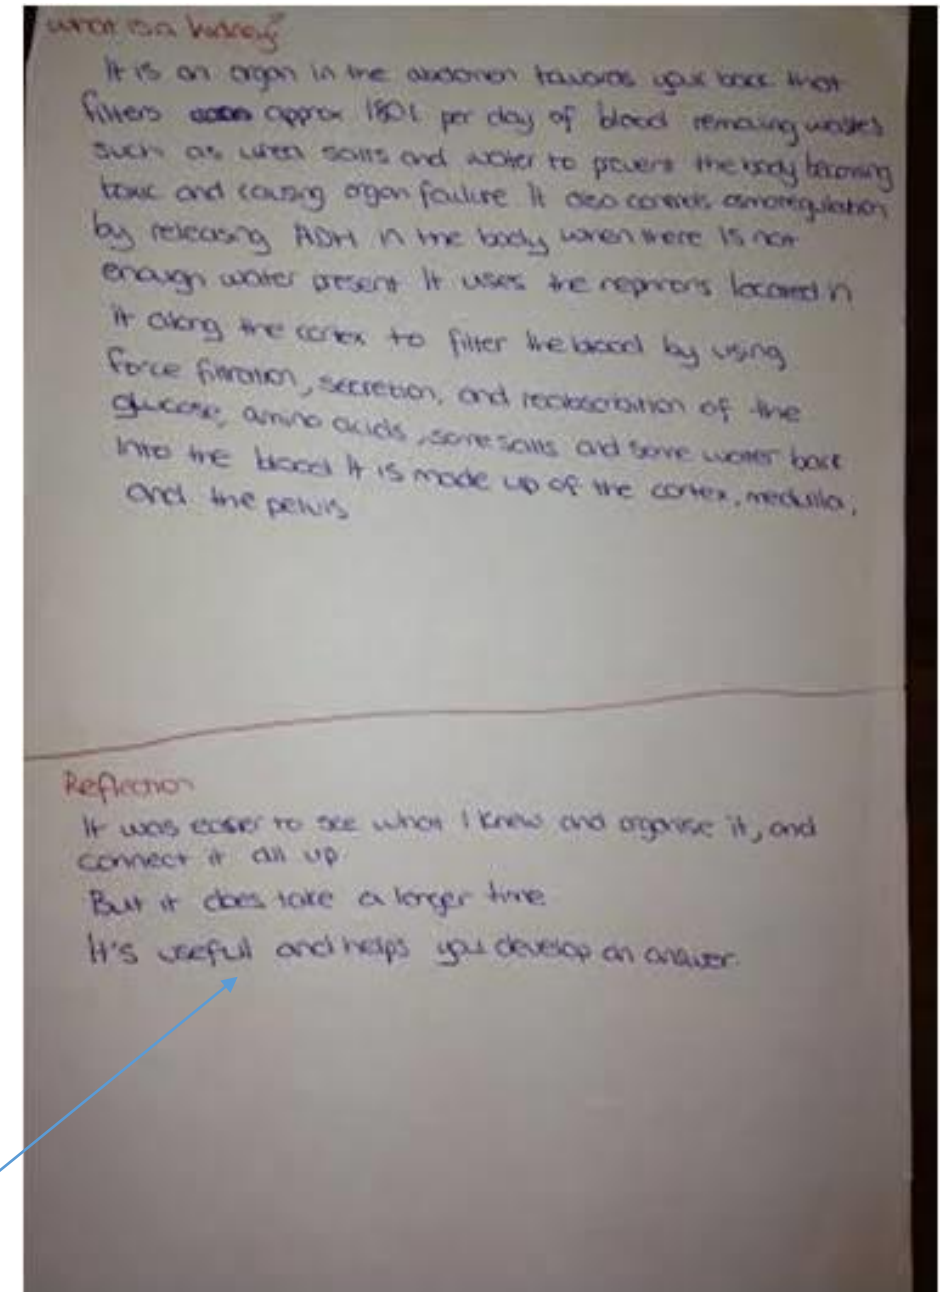 What is a kidney?
It is an organ in the abdomen towards your back that
filters approx 180L per day of blood removing wastes
such as urea salts and water to prevent the body becoming
toxic and causing organ failure It also controls osmoregulation
by releasing ADH in the body when there is not
enough water present It uses the nephrons located in
it along the cortex to filter the blood by using
force filtration, secretion, and reabsorbtion of the
glucose, amino acids, some salts and some water back
into the blood It is made up of the cortex, medulla,
and the pelvis
Reflection
It was easier to see what I knew and organise it, and
connect it all up
But it does take a longer time
It's useful and helps you develop an answer.